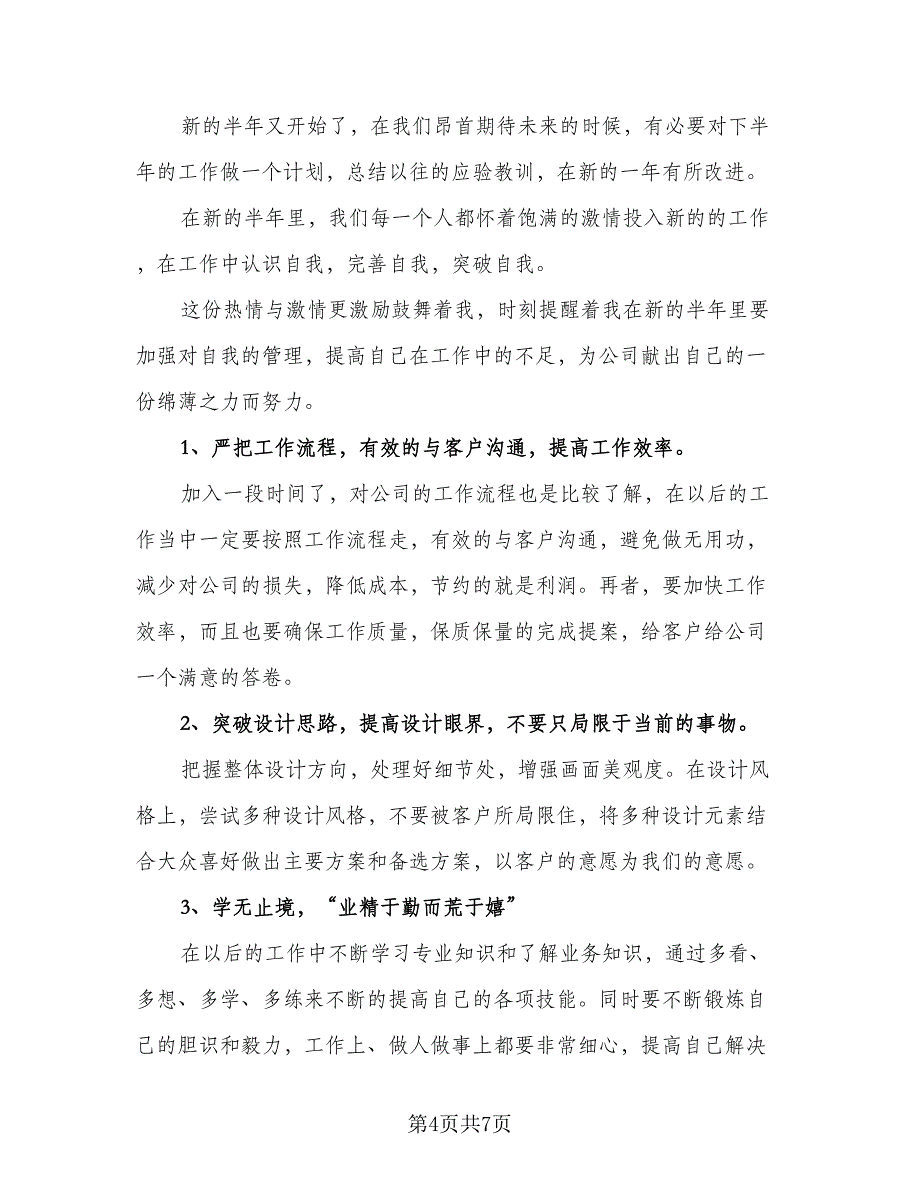 新的半年又开始了，在我们昂首期待未来的时候，有必要对下半
年的工作做一个计划，总结以往的应验教训，在新的一年有所改进。
在新的半年里，我们每一个人都怀着饱满的激情投入新的的工作
，在工作中认识自我，完善自我，突破自我。
这份热情与激情更激励鼓舞着我，时刻提醒着我在新的半年里要
加强对自我的管理，提高自己在工作中的不足，为公司献出自己的一
份绵薄之力而努力。
1、严把工作流程，有效的与客户沟通，提高工作效率。
加入一段时间了，对公司的工作流程也是比较了解，在以后的工
作当中一定要按照工作流程走，有效的与客户沟通，避免做无用功，
减少对公司的损失，降低成本，节约的就是利润。再者，要加快工作
效率，而且也要确保工作质量，保质保量的完成提案，给客户给公司
一个满意的答卷。
2、突破设计思路，提高设计眼界，不要只局限于当前的事物。
把握整体设计方向，处理好细节处，增强画面美观度。在设计风
格上，尝试多种设计风格，不要被客户所局限住，将多种设计元素结
合大众喜好做出主要方案和备选方案，以客户的意愿为我们的意愿。
3、学无止境，“业精于勤而荒于嬉”
在以后的工作中不断学习专业知识和了解业务知识，通过多看、
多想、多学、多练来不断的提高自己的各项技能。同时要不断锻炼自
己的胆识和毅力，工作上、做人做事上都要非常细心，提高自己解决
第4页共7页